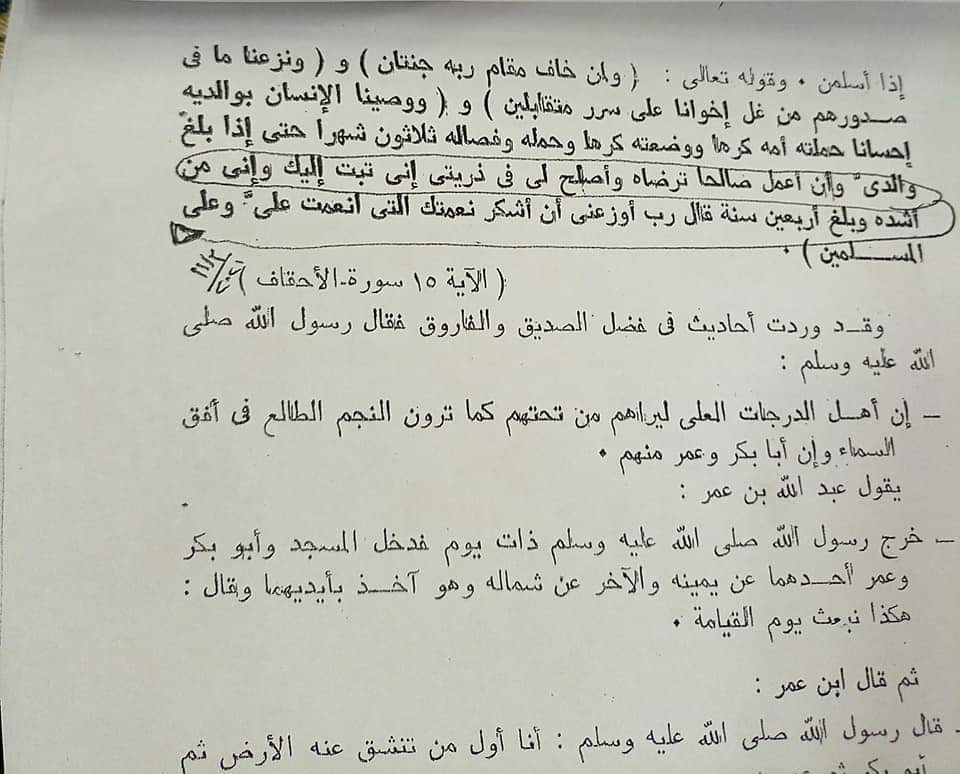 إذا أسلمن . وقوله تعالى : ( وان خاف مقام ربه جنتان ) و ( ونزعنا ما فى
صدورهم من غل إخوانا على سرر متقابلين ) و ( ووصينا الإنسان بوالديه
إحسانا حملته أمه كرها ووضعته كرها وحمله وفصاله ثلاثون شهرا حتى إذا بلغ
والدىّ وأن أعمل صالحا ترضاه وأصلح لى فى ذريتى إنى تبت إليك وإنى من
أشده وبلغ أربعين سنة قال رب أوزعنى أن أشكر نعمتك التى انعمت علىّ وعلى
المسلمين ) .
( الآية ١٥ سورة الأحقاف )
وقد وردت أحاديث فى فضل الصديق والفاروق فقال رسول الله صلى
الله عليه وسلم :
- إن أهل الدرجات العلى ليراهم من تحتهم كما ترون النجم الطالع فى أفق
السماء وإن أبا بكر وعمر منهم .
يقول عبد الله بن عمر :
- خرج رسول الله صلى الله عليه وسلم ذات يوم فدخل المسجد وأبو بكر
وعمر أحدهما عن يمينه والآخر عن شماله وهو آخذ بأيديهما وقال :
هكذا نبعث يوم القيامة .
ثم قال ابن عمر :
- قال رسول الله صلى الله عليه وسلم : أنا أول من تنشق عنه الأرض ثم
أبو بكر ثم